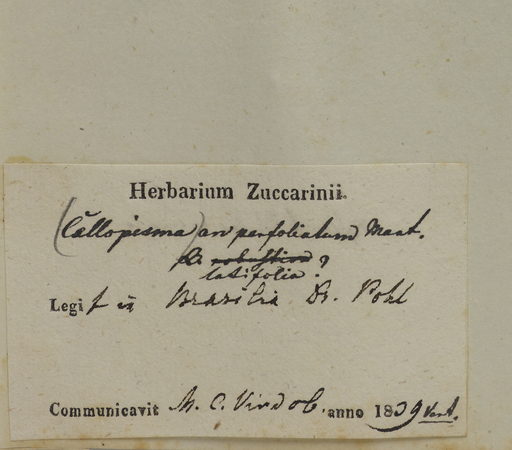 Herbarium Zuccarinii.
(Callopisma) an perfoliatum Mart.
β. robustior ?
latifolia.
Legit in Brasilia Dr. Pohl
Communicavit M. C. Vindob. anno 1839